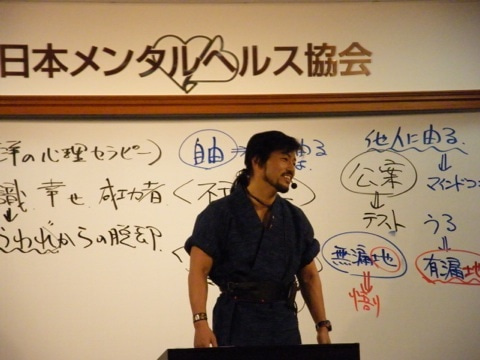 日本メンタルヘルス協会
の心理セラピー)
自由
他人に由る
職 幸せ 成功者
公案
マインドコ
テスト
うる
われからの脱却
無漏地
有漏地
悟り